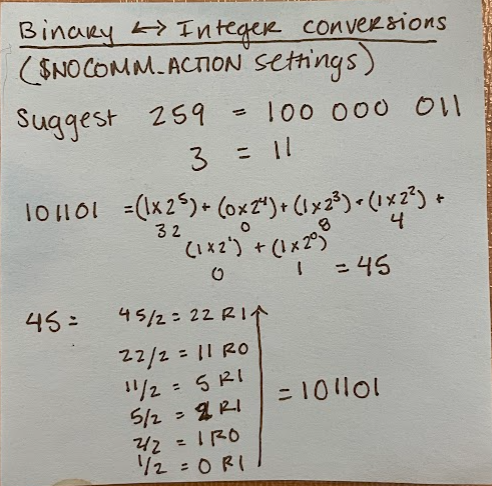 Binary ↔ Integer conversions
($NOCOMM_ACTION settings)
Suggest 259 = 100 000 011
3 = 11
101101 = (1x2⁵) + (0x2⁴) + (1x2³) + (1x2²) +
32 0 8 4
(1x2¹) + (1x2⁰)
0 1 = 45
45 = 45/2 = 22 R1
22/2 = 11 R0
11/2 = 5 R1
= 101101
5/2 = 2 R1
2/2 = 1 R0
1/2 = 0 R1